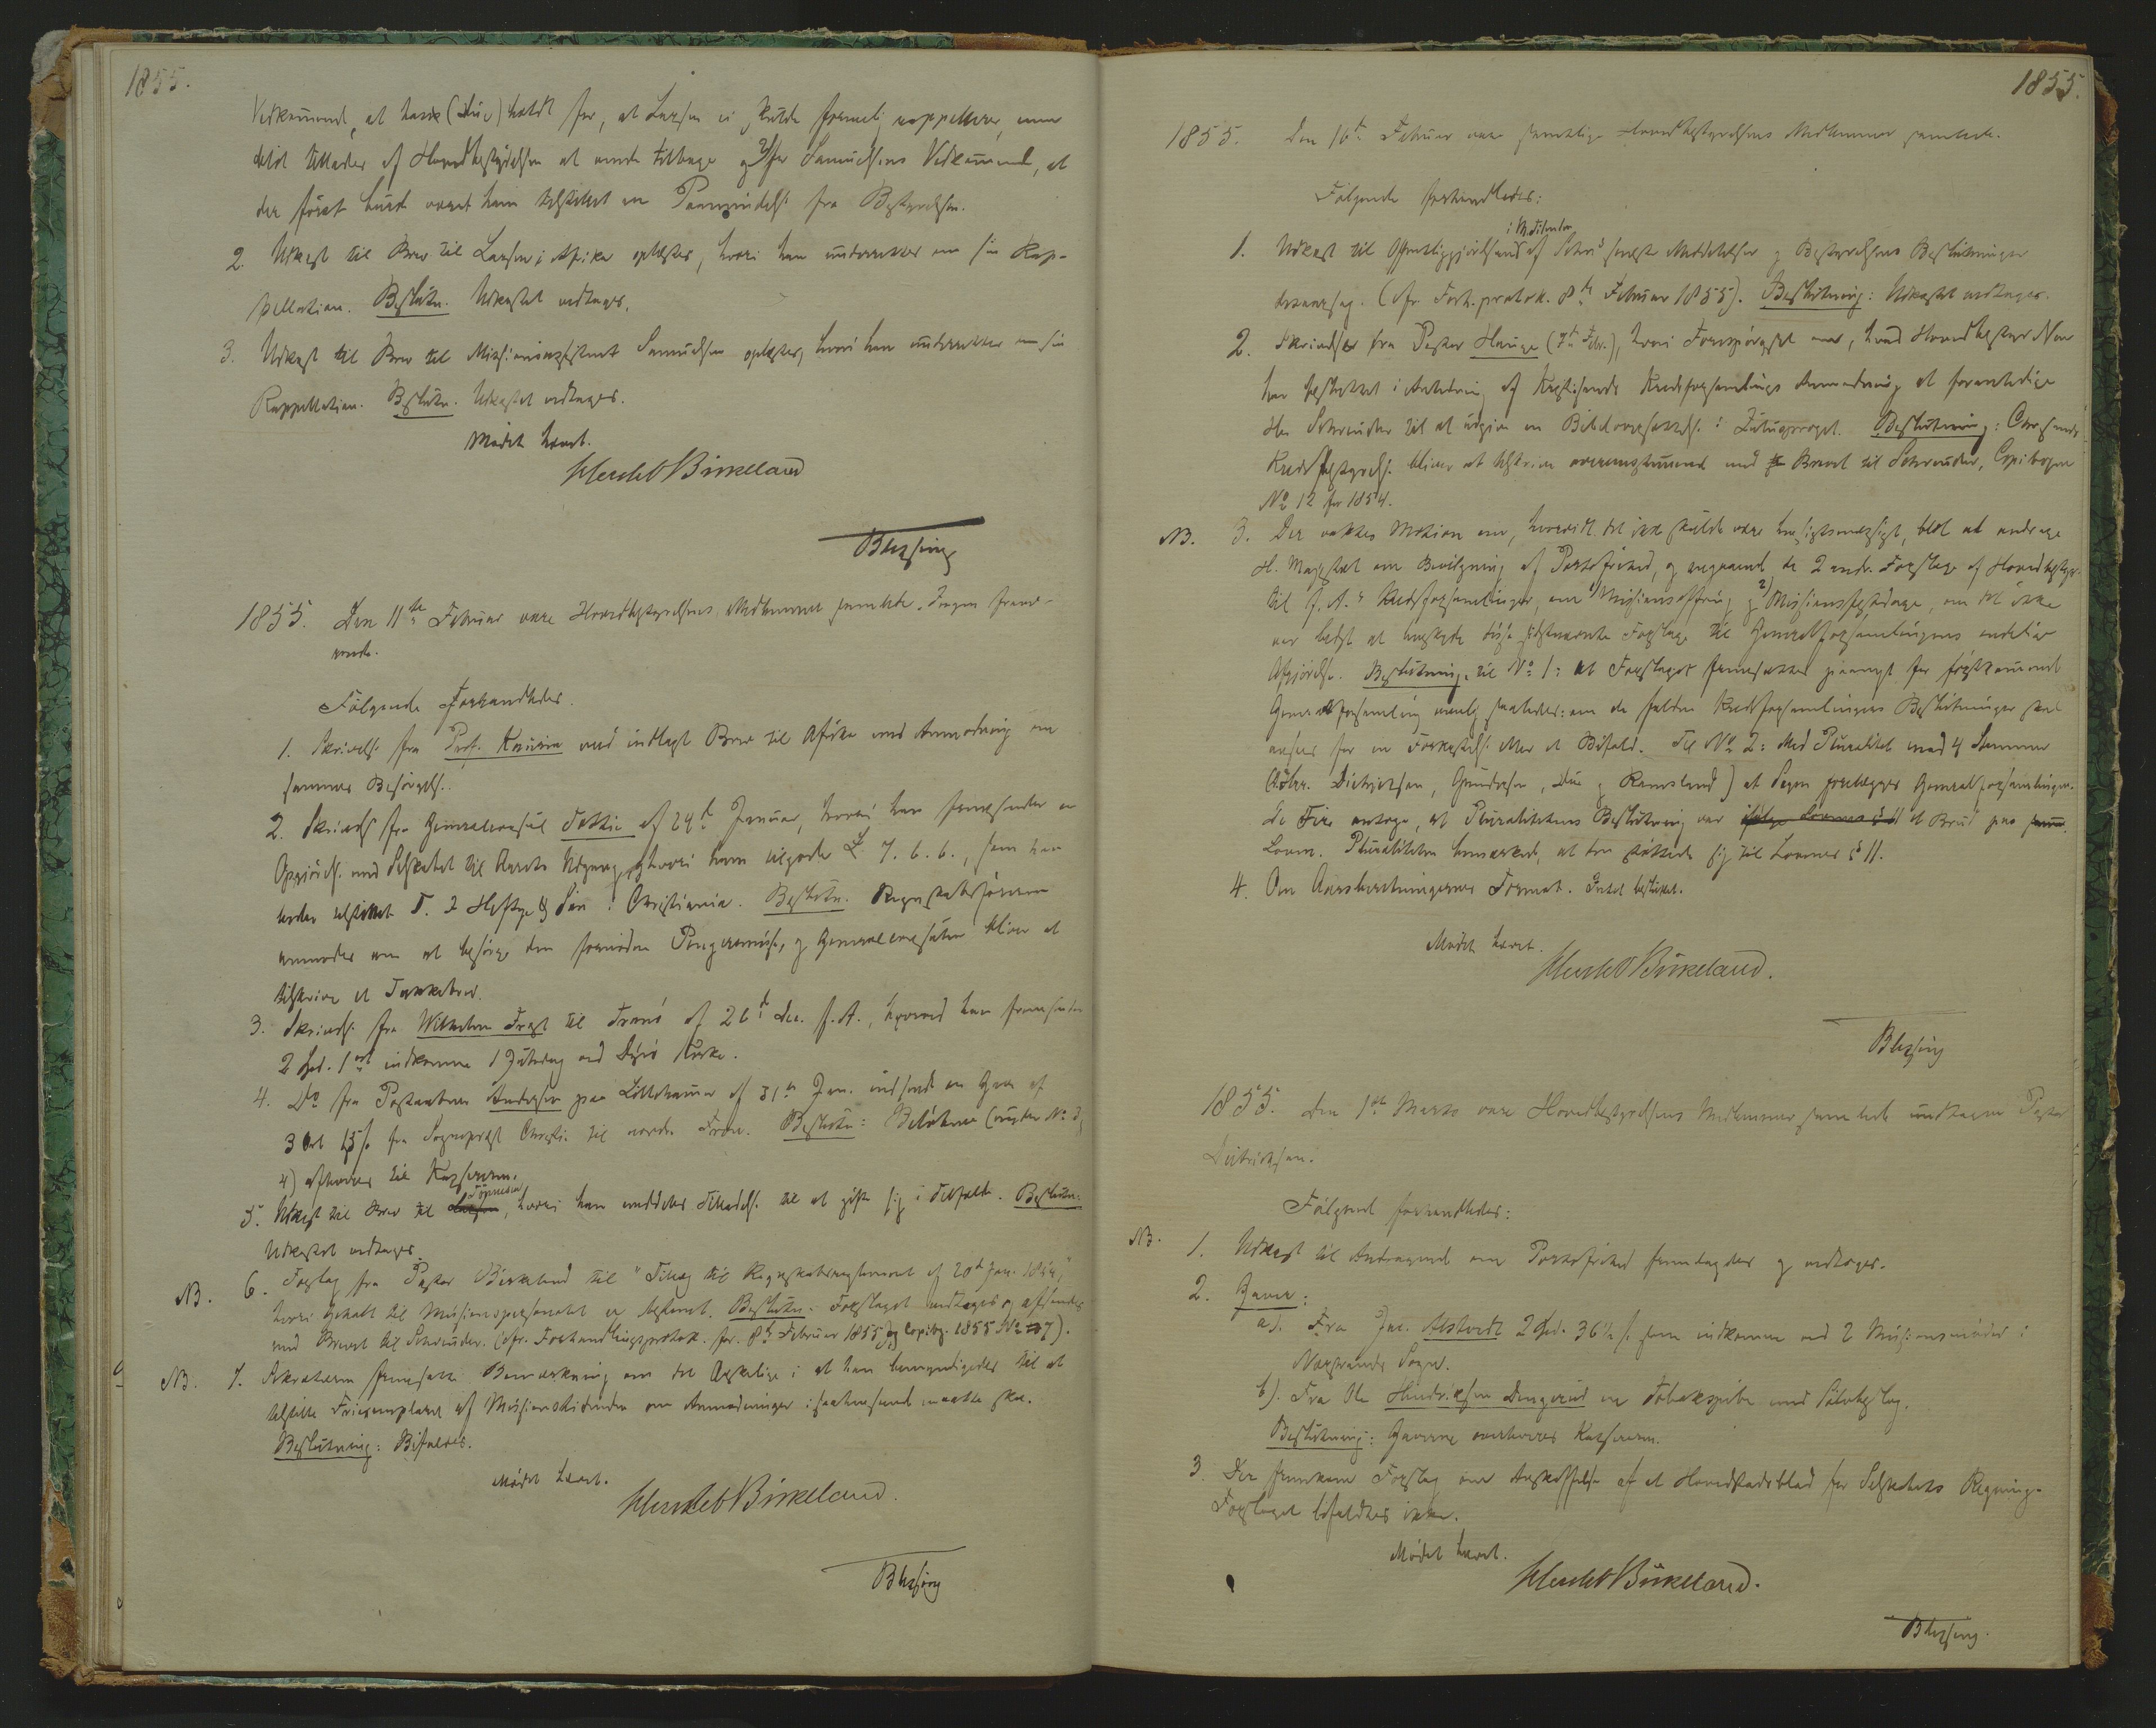 1855.
Vedkommende, at han (Due) holdt for, at Larsen ei skulde formelig rappelleres, men
blot tillades af Hovedbestyrelsen at vende tilbage og 2) for Samuelsens Vedkommende, at
der først burde været ham tilstillet en Paamindelse fra Bestyrelsen.
2. Udkast til Brev til Larsen i Afrika oplæstes, hvori han underrettes om sin Rap-
pellation. Beslutn. Udkastet vedtages.
3. Udkast til Brev til Missionsassistent Samuelsen oplæstes, hvori han underrettes om sin
Rappellation. Beslutn. Udkastet vedtages.
Mødet hævet.
Birkeland
Blessing
1855. Den 11te Februar vare Hovedbestyrelsens Medlemmer samlede. Ingen fravæ-
rende.
Følgende forhandledes.
1. Skrivelse fra Prof. Keurin med indlagt Brev til Afrika med Anmodning om
sammes Besørgelse.
2. Skrivelse fra Generalconsul Tottie af 24de Januar, hvori han fremsender en
Opgjørelse med Selskabet til Aarets Udgang, hvori ham tilgode £ 7. 6. 6., som han
beder tilstillet T. J. Heftye & Søn i Christiania. Beslutn. Regnskabsføreren
anmodes om at besørge den fornødne Pengeremisse, og Generalconsulen bliver at
tilskrive et Takkebrev.
3. Skrivelse fra Wilhelm Frost til Tromsø af 26de Dec. f. A., hvorved han fremsender
2 Spd. 1 ort indkomne 1 Juledag ved Kirke.
4. Do fra Postaabner Andersen paa Lillehammer af 31te Jan. indsendt en Gave af
3 Ort 15 s. fra Sognepræst Christie til nordre Fron. Beslutn: Beløbene (under No 3,
4) afleveres til Kassereren.
5. Udkast til Brev til Tönnesen, hvori han meddeles Tilladelse til at gifte sig i Tilfælde. Beslutn:
Udkastet vedtages.
NB. 6. Forslag fra Pastor Birkeland til "Tillæg til Regnskabsreglement af 20de Jan. 1854,"
hvori Gehalt til Missionspersonalet er bestemt. Beslutn: Forslaget vedtages og afsendes
med Brevet til Schreuder. (cfr. Forhandlingsprotok. for 8de Februar 1855 og Copibg. 1855 No 7).
NB. 7. Sekretæren fremsatte Bemærkning om det Ønskelige i at han bemyndigedes til at
tilstille Friexemplarer af Missionstidenden om Anmodninger i saahenseende maatte ske.
Beslutning: Bifaldes.
Mødet hævet.
Birkeland.
Blessing
1855.
1855. Den 16de Februar vare samtlige Hovedbestyrelsens Medlemmer samlede.
Følgende forhandledes:
1. Udkast til Offentliggjørelse i M.tidenden af Schreuders seneste Meddelelser og Bestyrelsens Beslutninger
desaarsag. (cfr Forh.protok. 8de Februar 1855). Beslutning: Udkastet vedtages.
2. Skrivelse fra Pastor Hauge (7de Febr.), hvori Forespørgsel om, hvad Hovedbestyrelsen
har besluttet i Anledning af Christiansands Kredsforsamlings Anmodning at foranledige
Hr. Schreuder til at udgive en Bibeloversættelse i Zulusproget. Beslutning: Chrsands
Kredsbestyrelse bliver at tilskrive overensstemmende med Brevet til Schreuder, Copibogen
No 12 for 1854.
NB. 3. Der vaktes Motion om, hvorvidt det ikke skulde være hensigtsmæssigt, blot at andrage
H. Majestæt om Bevilgning af Portofrihed, og angaaende de 2 andre Forslage af Hovedbestyr.
til f. A.s Kredsforsamlinger, om 1) Missionsoffring og 2) Missionsfestdage, om det ikke
var bedst at henskyde disse sidstnævnte Forslage til Generalforsamlingens endelige
Afgjørelse. Beslutning. til No 1: at Forslaget fremsættes for førstkommende
Generalforsamling saaledes: om de faldne Kredsforsamlingers Beslutninger skal
ansees for en Forkastelse eller et Bifald. Til No 2: Med Pluralitet med 4 Stemmer
(Dhrr. Dietrichson, Gundersen, Due og Ramsland) at Sagen forelægges Generalforsamlingen.
De Fire antoge, at Pluralitetens Beslutning var et Brud paa
Loven. Pluraliteten bemærkede, at den støttede sig til Lovenes § 11.
4. Om Aarsberetningernes Format. Intet besluttet.
Mødet hævet.
Birkeland.
Blessing
1855. Den 1ste Marts vare Hovedbestyrelsens Medlemmer samlede undtagen Pastor
Dietrichson.
Følgende forhandledes:
NB. 1. Udkast til Andragende om Portofrihed fremlagdes og vedtoges.
2. Gaver:
a). Fra Jac. Alsvedt 2 Spd. 36 1/2 s. som indkomne ved 2 Missionsmøder i
Nærstrands Sogn.
b). Fra Ole Hendriksen Dengerud en Tobakspibe med Sølvbeslag.
Beslutning: Gaverne overleveres Kassereren.
3. Der fremkom Forslag om Anskaffelse af et Hovedstadsblad for Selskabets Regning.
Forslaget bifaldtes ikke.
Mødet hævet.
Birkeland.
Blessing.